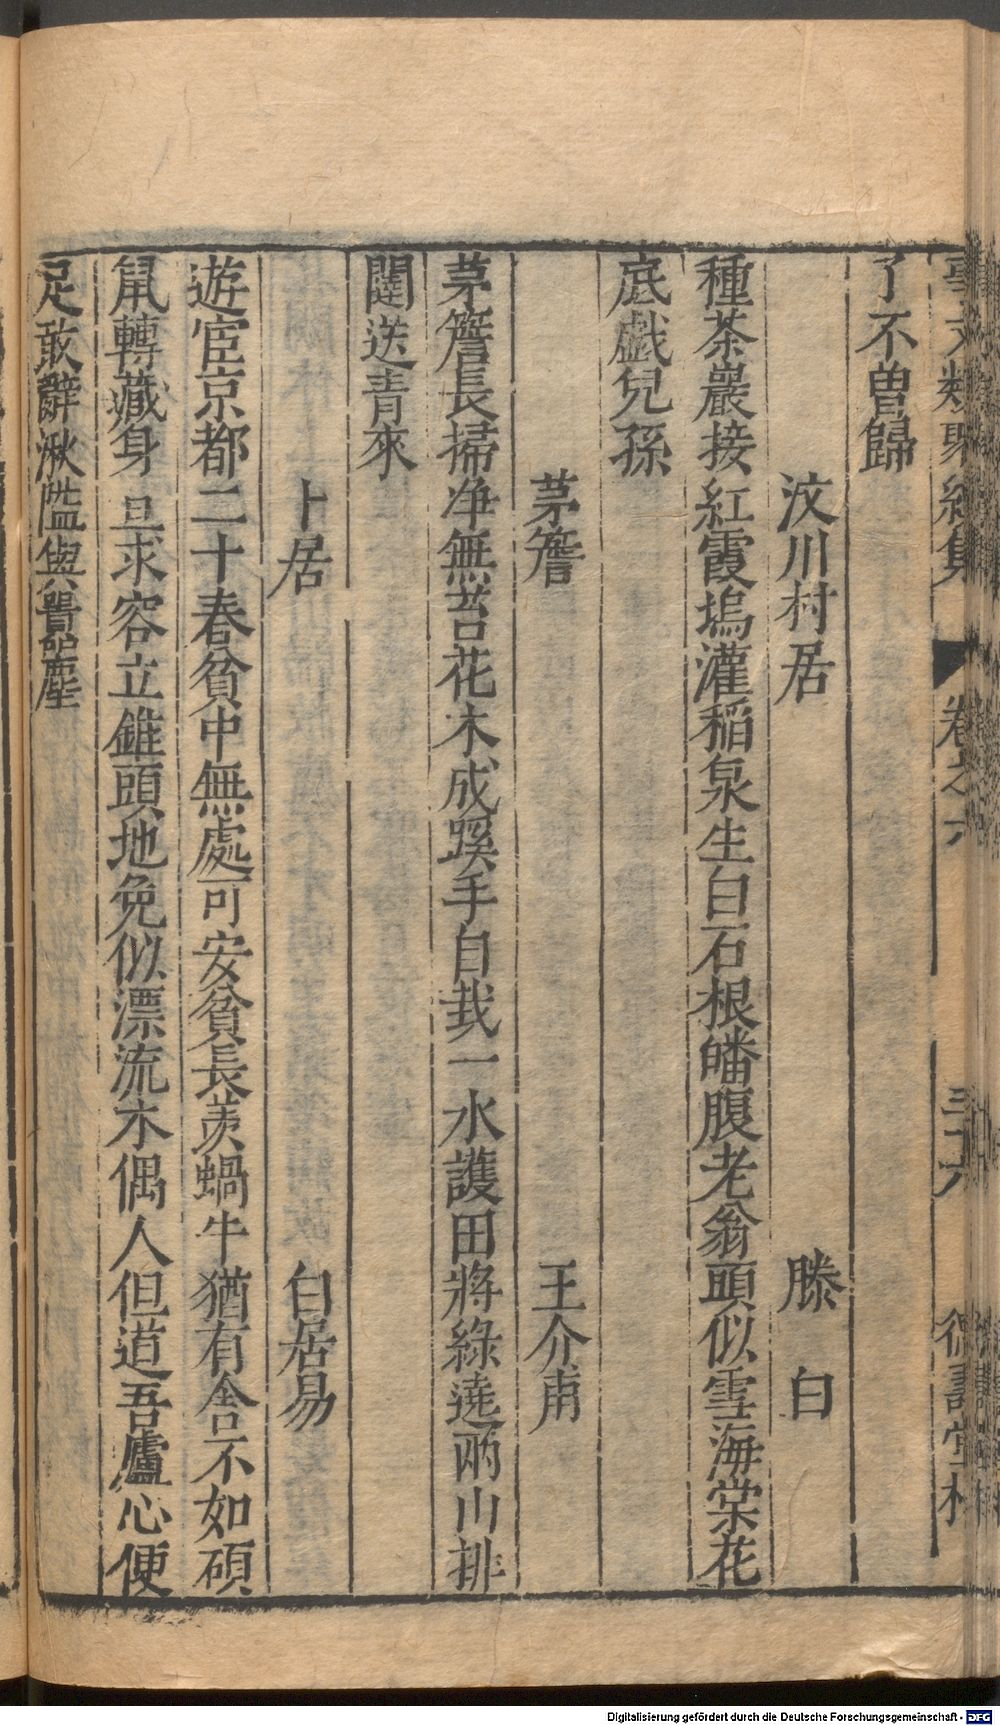 事文類聚續集 卷之六 三十六 德壽堂梓
了不曾歸
汶川村居 滕白
種茶巖接紅霞塢灌稻泉生白石根皤腹老翁頭似雪海棠花
底戯兒孫
茅簷 王介甫
茅簷長掃净無苔花木成蹊手自栽一水護田將綠遶兩山排
闥送青來
卜居 白居易
遊宦京都二十春貧中無處可安貧長羨蝸牛猶有舍不如碩
鼠轉藏身且求容立錐頭地免似漂流木偶人但道吾廬心便
足敢辭湫隘與嚻塵
Digitalisierung gefördert durch die Deutsche Forschungsgemeinschaft - DFG